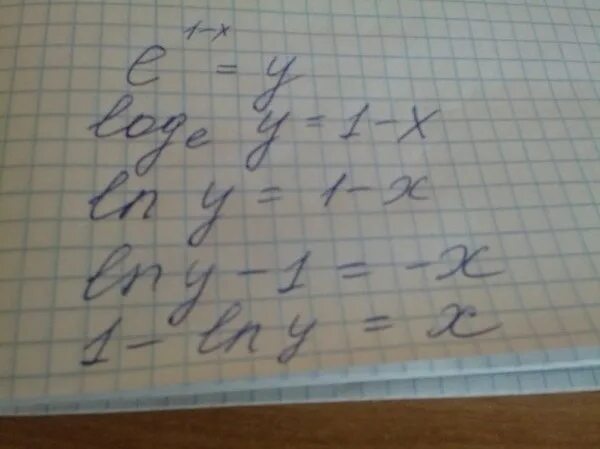 e^{1-x} = y
log_e y = 1 - x
ln y = 1 - x
ln y - 1 = -x
1 - ln y = x